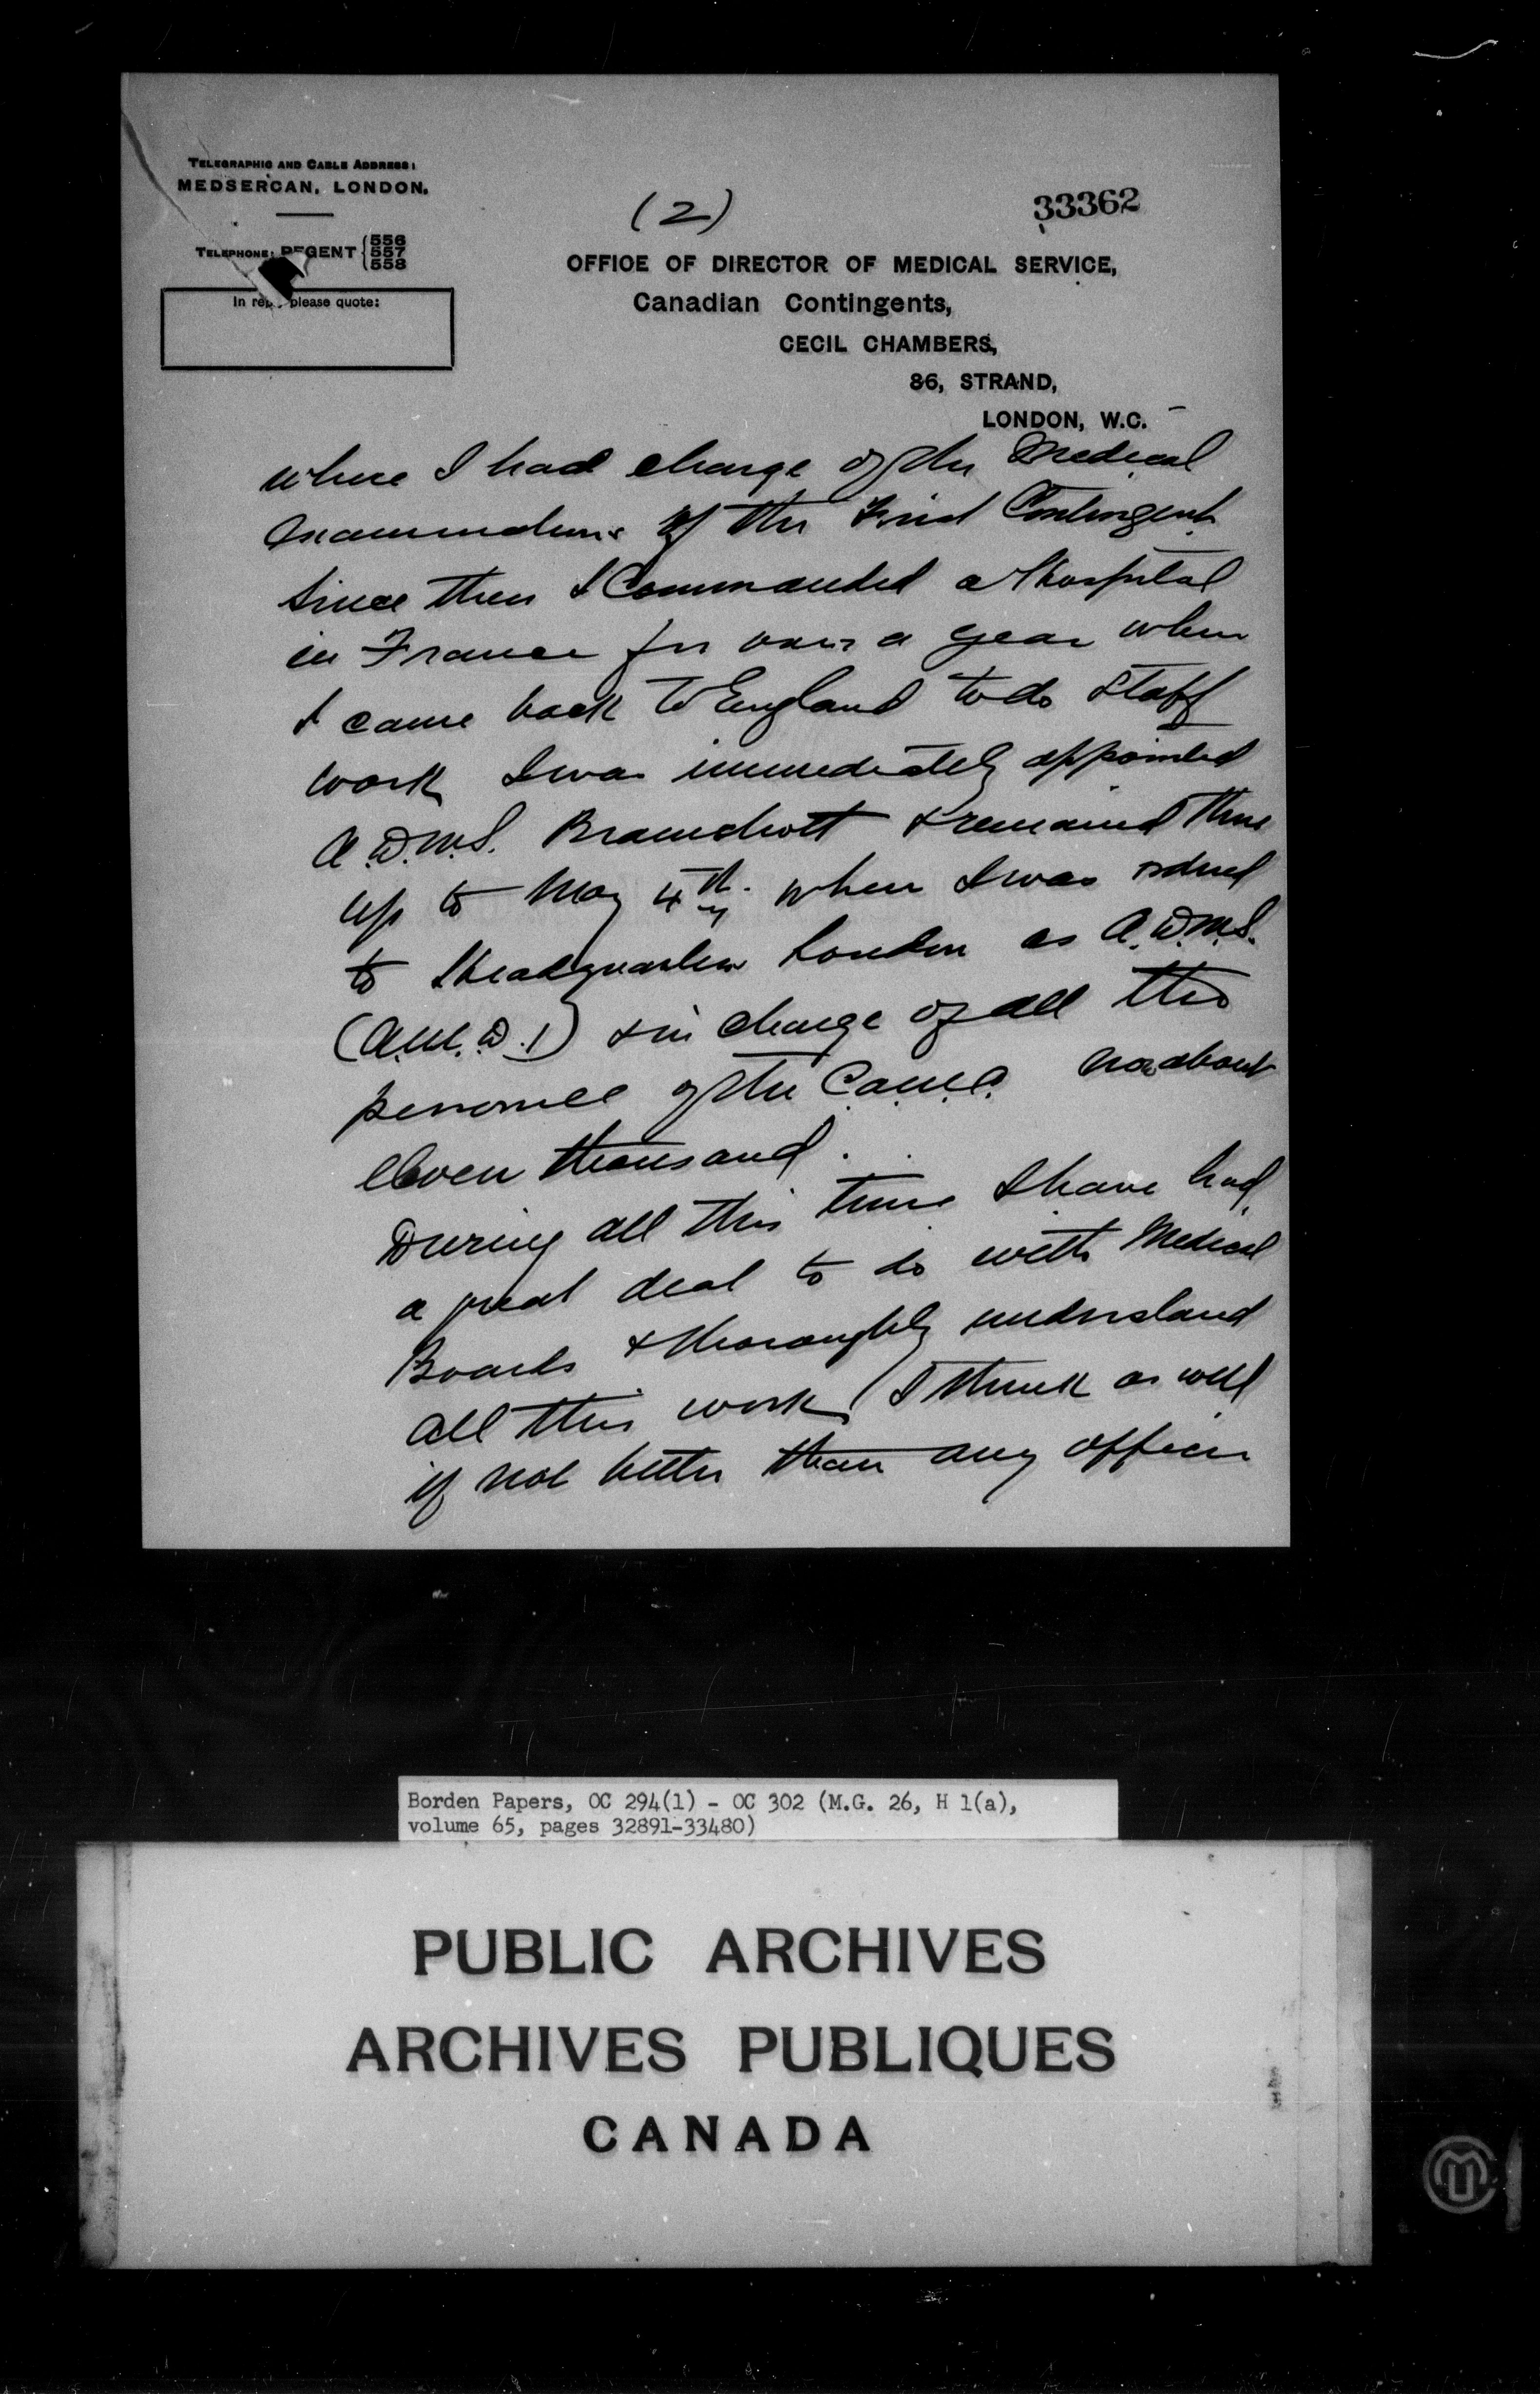 TELEGRAPHIC AND CABLE ADDRESS:
MEDSERCAN, LONDON.
TELEPHONE: REGENT { 556 557 558
In reply please quote:
(2)
33362
OFFICE OF DIRECTOR OF MEDICAL SERVICE,
Canadian Contingents,
CECIL CHAMBERS,
86, STRAND,
LONDON, W.C.
where I had charge of the Medical
Examinations of the First Contingent
Since then I Commanded a Hospital
in France for over a year when
I came back to England to do Staff
work I was immediately appointed
A.D.M.S. Bramshott & remained there
up to May 4th when I was ordered
to Headquarters London as A.D.M.S.
(A.M.D.1) & in charge of all the
personnel of the C.A.M.C. now about
eleven thousand.
During all this time I have had
a great deal to do with Medical
Boards & thoroughly understand
all this work, I think as well
if not better than any officer
Borden Papers, OC 294(1) - OC 302 (M.G. 26, H 1(a),
volume 65, pages 32891-33480)
PUBLIC ARCHIVES
ARCHIVES PUBLIQUES
CANADA